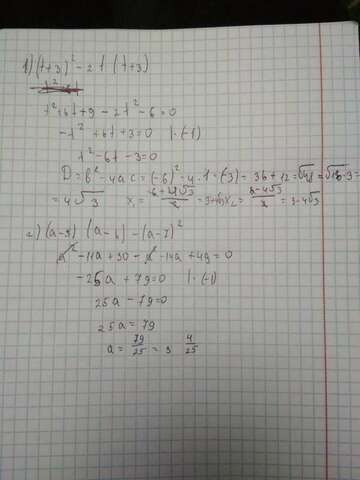 1) (t+3)² - 2t (t+3)
t² + 6t + 9 - 2t² - 6 = 0
-t² + 6t + 3 = 0 |·(-1)
t² - 6t - 3 = 0
D = b² - 4ac = (-6)² - 4·1·(-3) = 36 + 12 = √48 = √16·3 =
= 4√3 x₁ = (6+4√3)/2 = 3+4√3 x₂ = (6-4√3)/2 = 3-4√3
2) (a-5) (a-6) - (a-7)²
a² - 11a + 30 - a² - 14a + 49 = 0
-25a + 79 = 0 |·(-1)
25a - 79 = 0
25a = 79
a = 79/25 = 3 4/25